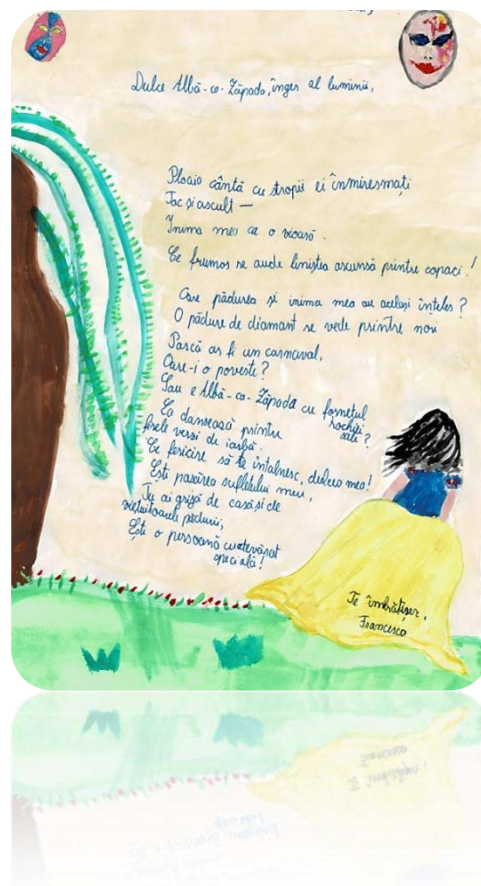 Dulce Albă-ca-Zăpada, înger al luminii,
Ploaia cântă cu stropii ei înmiresmați
Tac și ascult —
Inima mea ca o vioară.
Ce frumos se aude liniștea ascunsă printre copaci!
Oare pădurea și inima mea au același înțeles?
O pădure de diamant se vede printre nori
Parcă ar fi un carnaval,
Oare-i o poveste?
Sau e Albă-ca-Zăpada cu foșnetul
rochiei
sale?
Ea dansează printre
firele verzi de iarbă.
Ce fericire să te întâlnesc, dulcea mea!
Ești pasărea sufletului meu,
Tu ai grijă de casă și de
viețuitoarele pădurii,
Ești o persoană cu adevărat
specială!
Te îmbrățișez,
Francesca